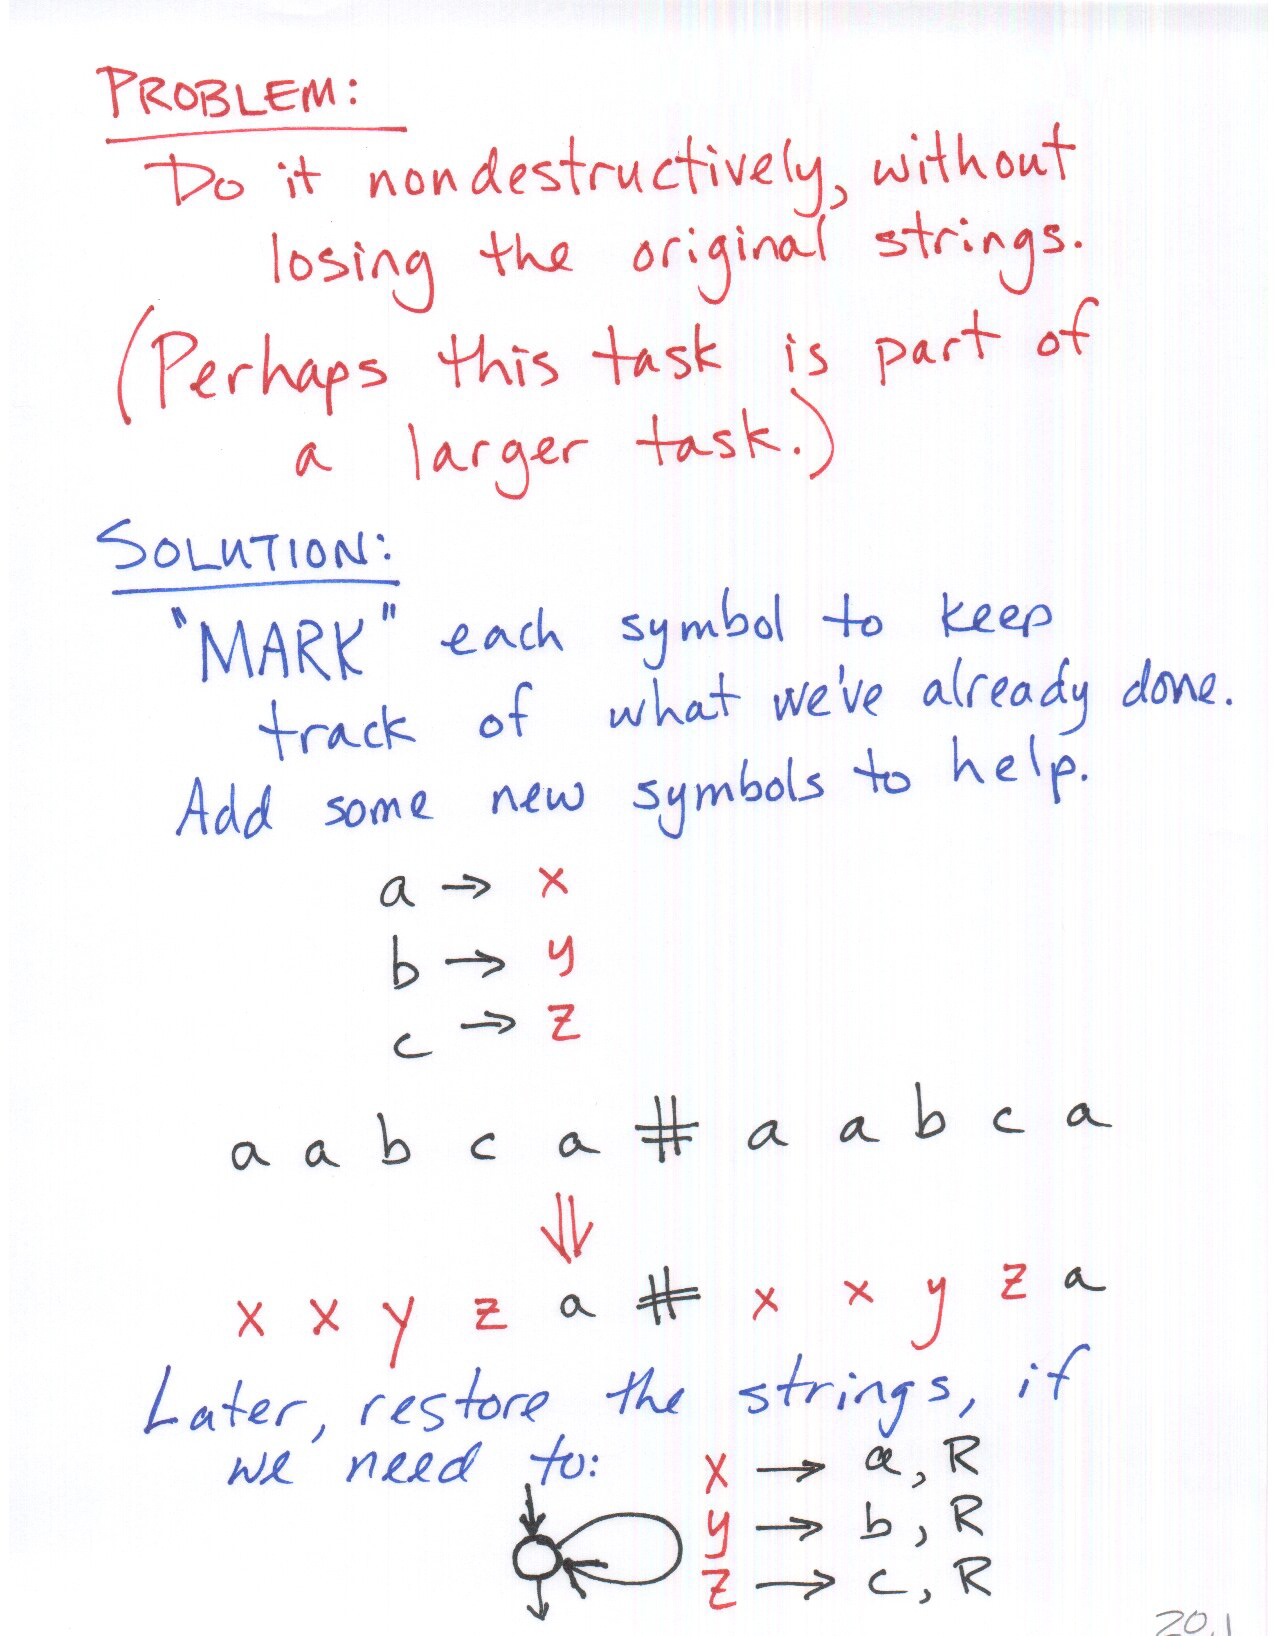 PROBLEM:
Do it nondestructively, without
losing the original strings.
(Perhaps this task is part of
a larger task.)
SOLUTION:
"MARK" each symbol to keep
track of what we've already done.
Add some new symbols to help.
a → x
b → y
c → z
a a b c a # a a b c a
⇓
x x y z a # x x y z a
Later, restore the strings, if
we need to:
x → a, R
y → b, R
z → c, R
20.1